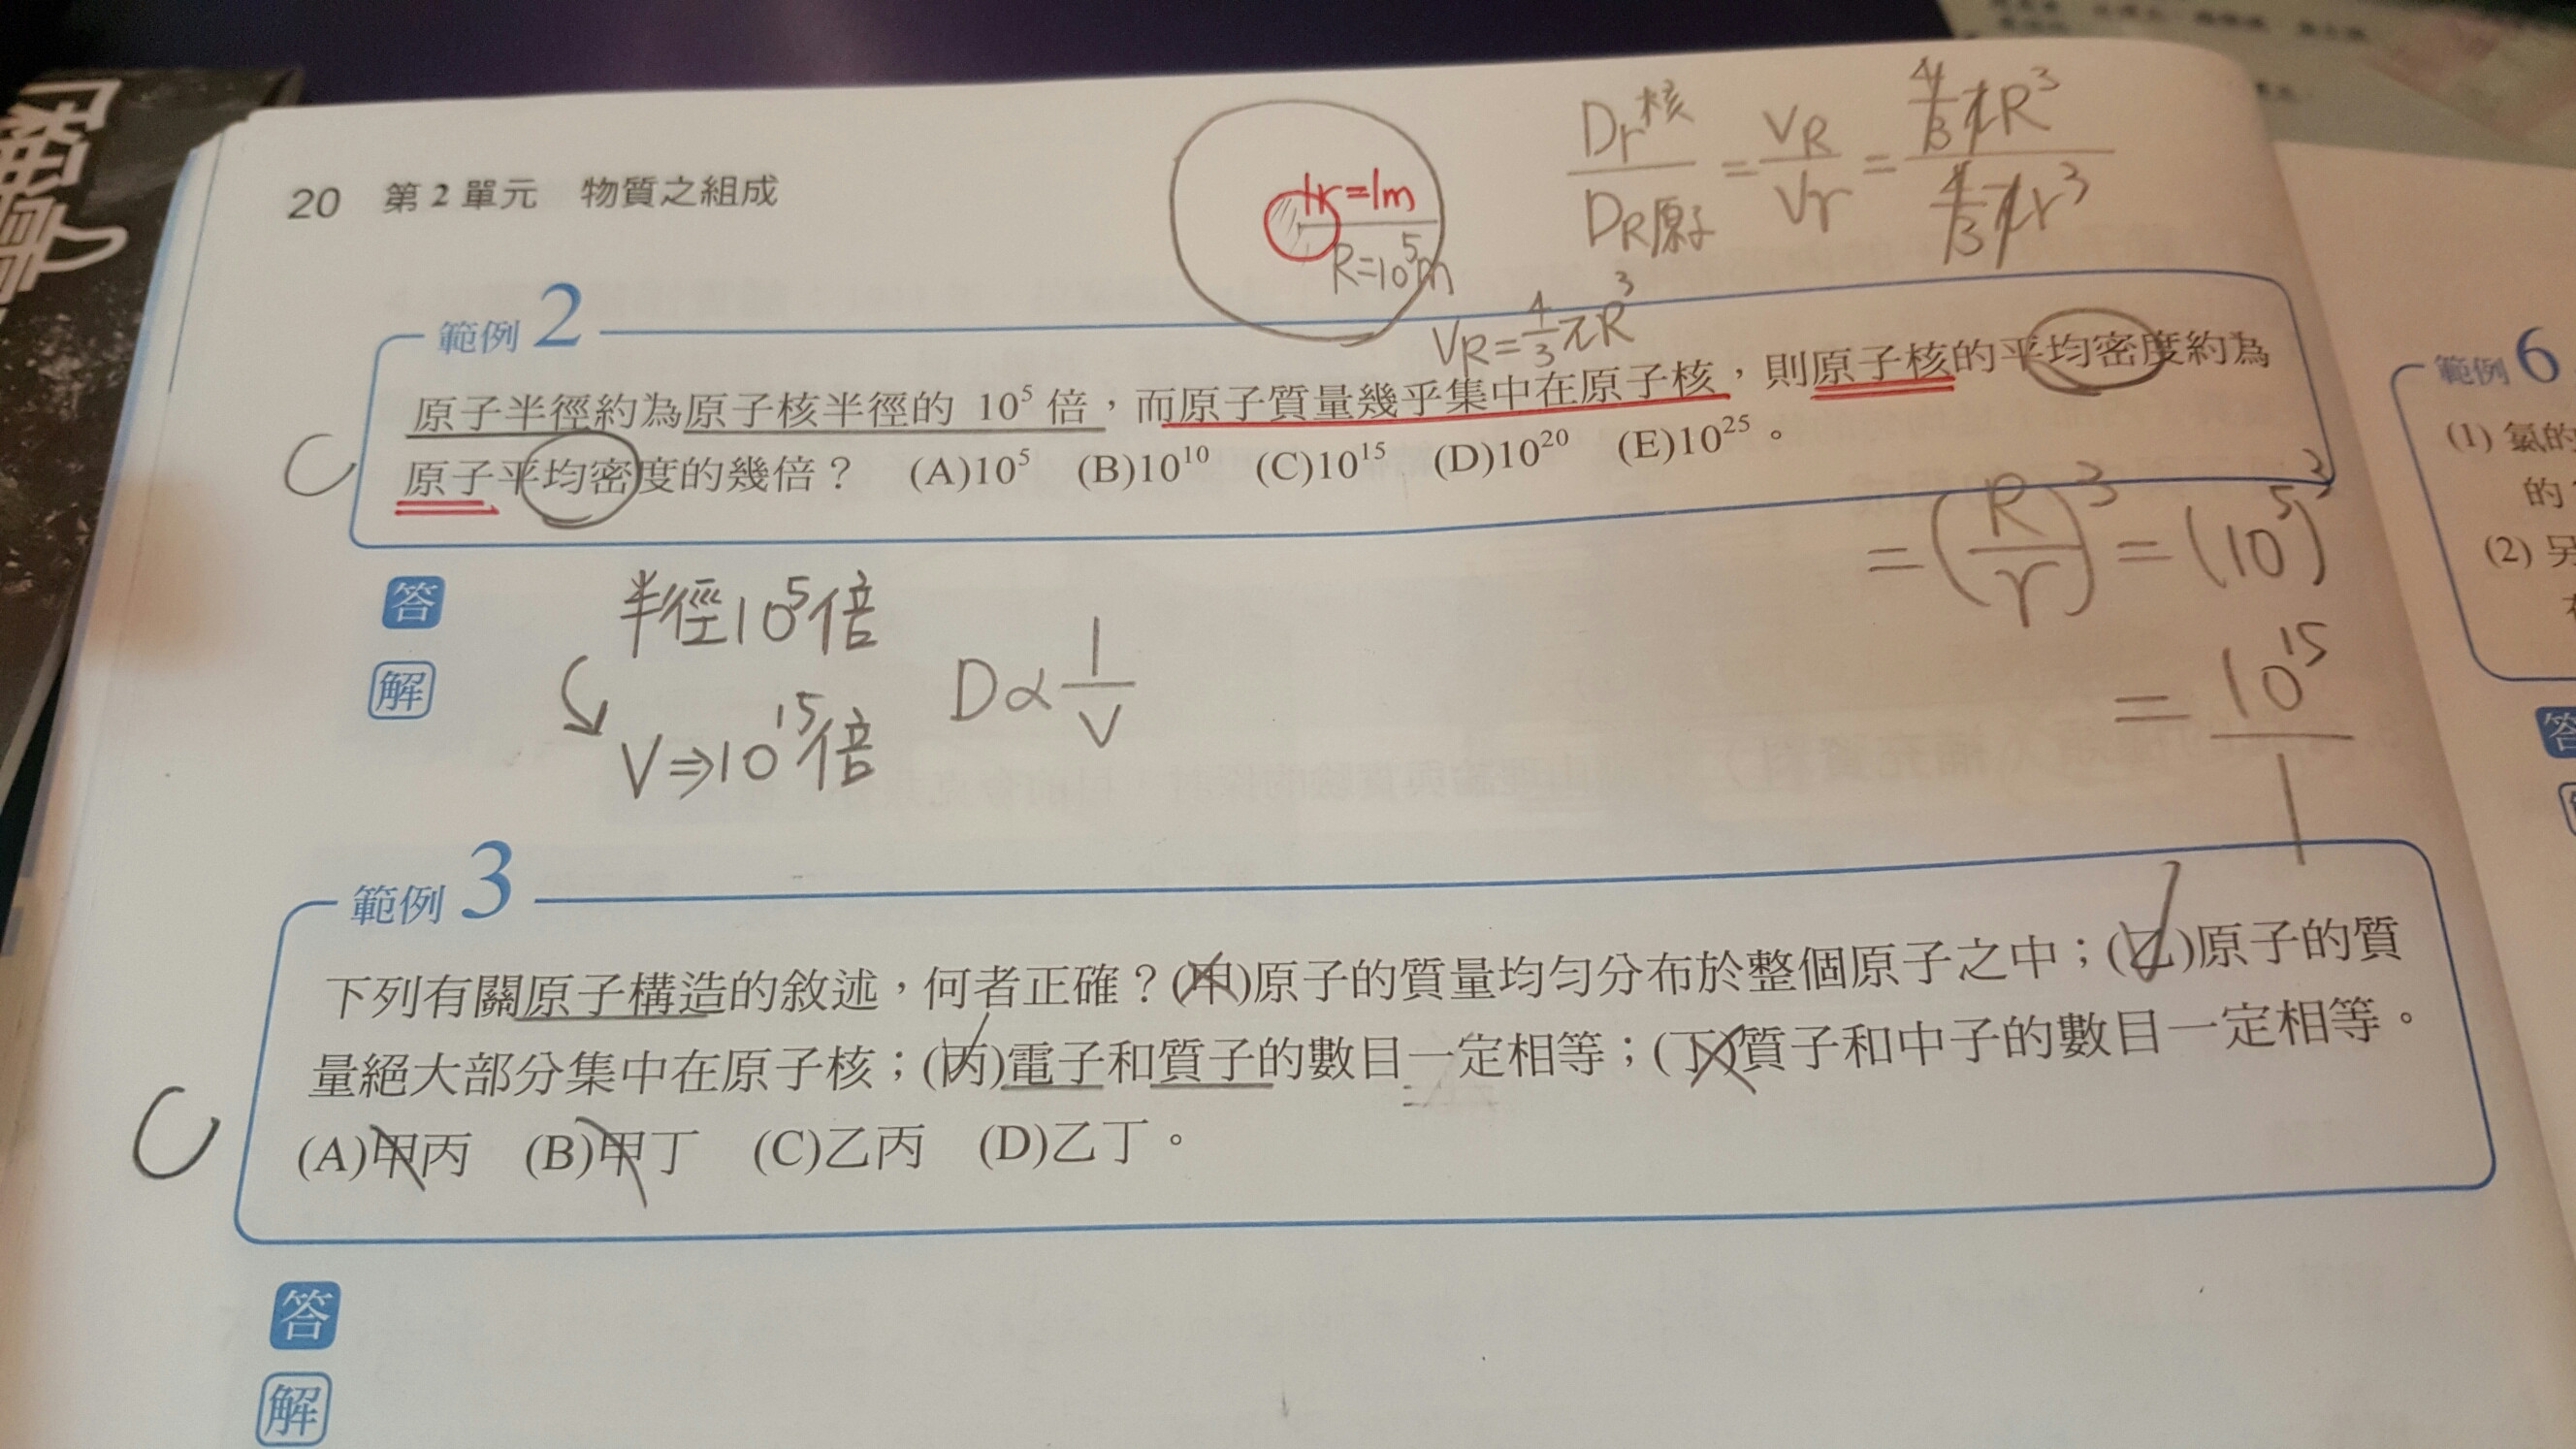 20 第2單元 物質之組成
r=1m
R=10⁵m
Dr核/DR原子 = VR/Vr = 4/3πR³ / 4/3πr³
VR=4/3πR³
範例2
原子半徑約為原子核半徑的 10⁵ 倍，而原子質量幾乎集中在原子核，則原子核的平均密度約為
C 原子平均密度的幾倍？ (A)10⁵ (B)10¹⁰ (C)10¹⁵ (D)10²⁰ (E)10²⁵。
=(R/r)³=(10⁵)³
=10¹⁵/1
答
半徑10⁵倍
解
D∝1/V
V⇒10¹⁵倍
範例3
下列有關原子構造的敘述，何者正確？(甲)原子的質量均勻分布於整個原子之中；(乙)原子的質
量絕大部分集中在原子核；(丙)電子和質子的數目一定相等；(丁)質子和中子的數目一定相等。
C (A)甲丙 (B)甲丁 (C)乙丙 (D)乙丁。
答
解
範例6
(1) 氯的
的
(2) 另
答